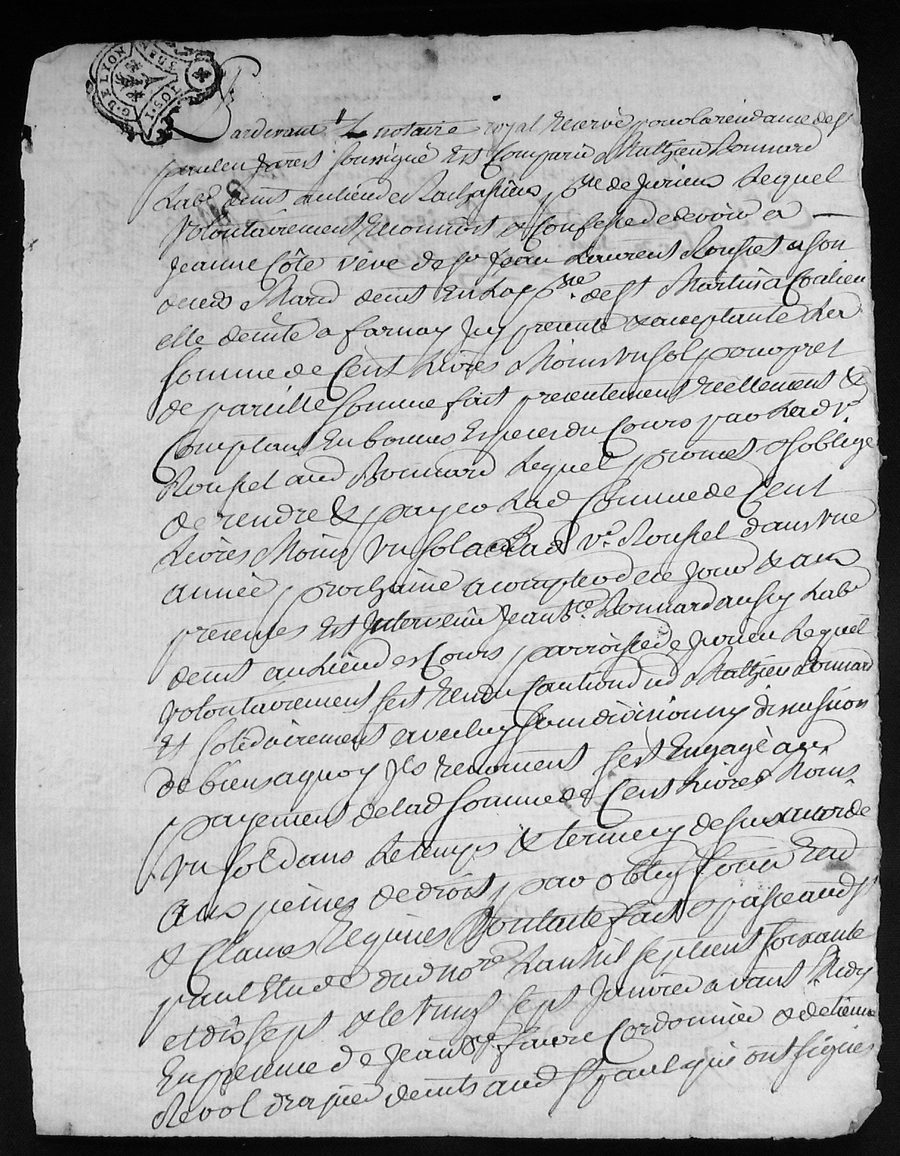 G. DE LYON
1 SOL
Pardevant Le notaire royal reservé pour la rendame de St
paul en Jarest soussigné est Comparu Mathieu Bonnard
Lab.r demt au lieu de p.sse de Jurieu Lequel
volontairement reconnoit & Confesse de devoir a
Jeanne Côte veve de Sr Jean Laurent Roussel a son
deceds Mard demt en Lay p.sse de St Martin a Coalieu
elle demte a farnay Icy presente & acceptante La
somme de Cent Livres Moins un sol pour pret
de pareille somme fait presentement réellement &
Comptant en bonnes especes du Cours par Lad ve
Roussel aud Bonnard Lequel promet & soblige
de rendre & payer Lad somme de Cent
Livres Moins un sol a Lad ve Roussel dans une
année prochaine a compter de ce Jour & aux
presentes est Intervenu Jean Bte Bonnard aussy Lab.r
demt au Lieu des Cours parroisse de Jurieu Lequel
volontairement sest rendu Caution dud Mathieu Bonnard
et solidairement avec luy sans division ny discussion
de biens a quoy Ils renoncent sest Engagé au
payement de lad somme de Cent Livres Moins
un sol dans Le temps & terme cy dessus accordé
aux peines de droit par oblig.
& Clauses Requises fait & passé aud St
paul Etude dud no.re Lan Mil sept cent soixante
et dix sept & le vingt sept Janvier avant Midy
En presence de Jean Bte favre Cordonnier & detienne
Revol drapier demts aud St paul qui ont signés